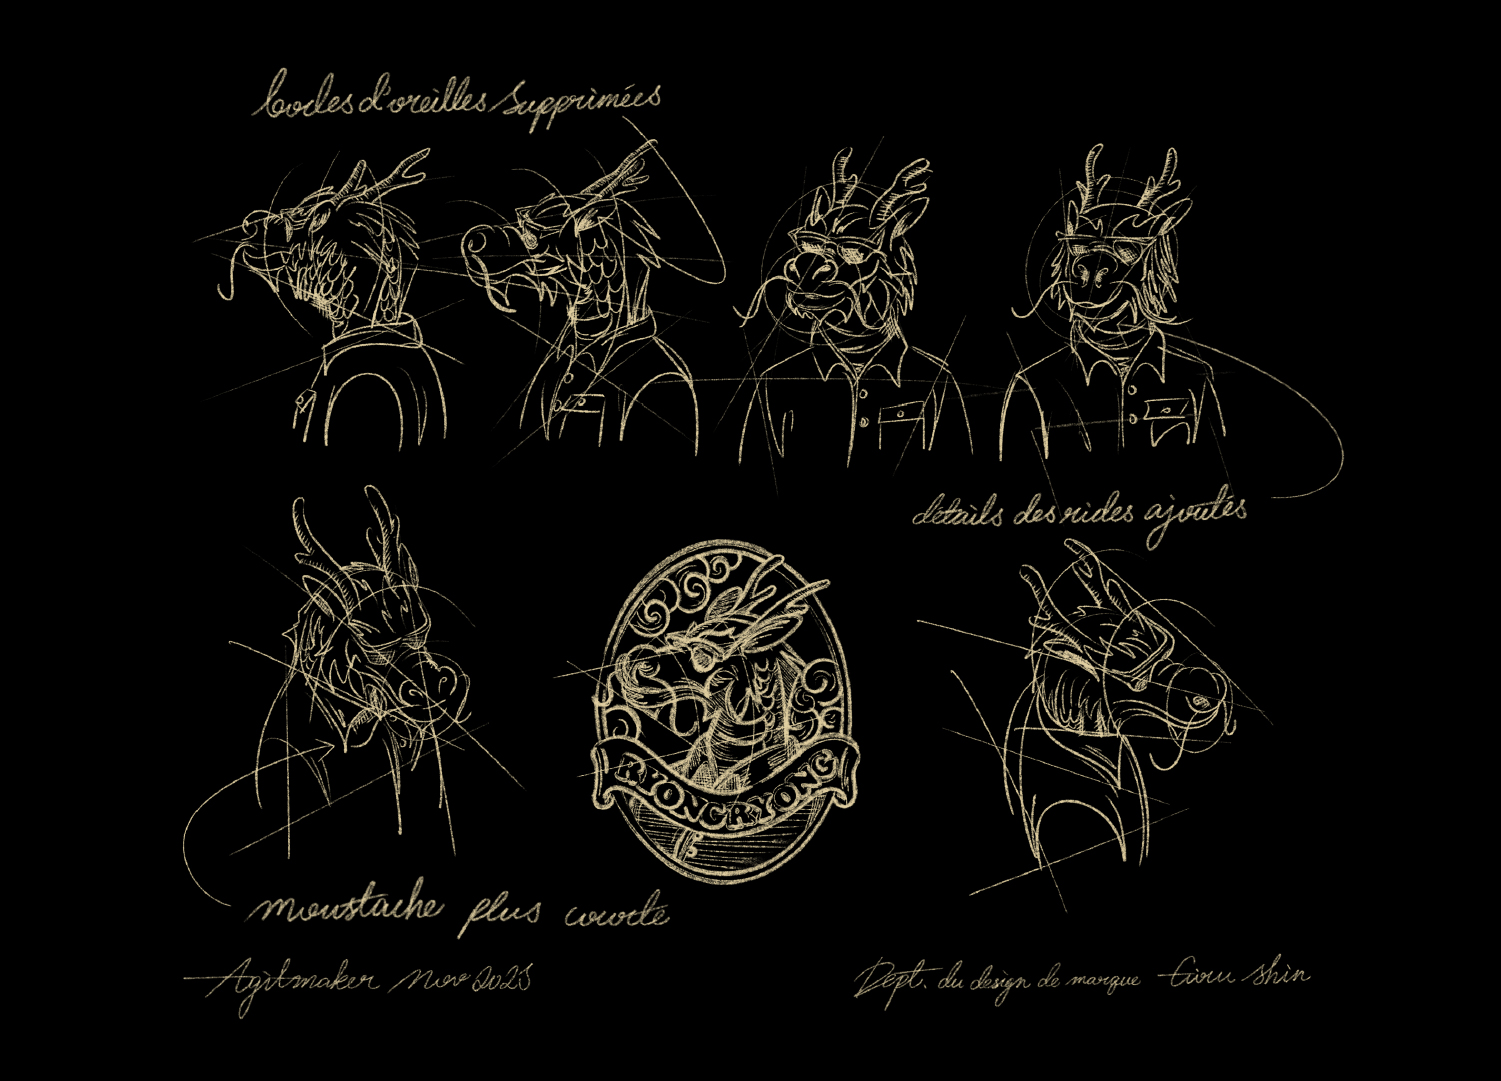 bocles d'oreilles supprimées
détails des rides ajoutés
RYONGRYONG
moustache plus courte
Agitmaker Nov 2023
Dept. du design de marque Shin